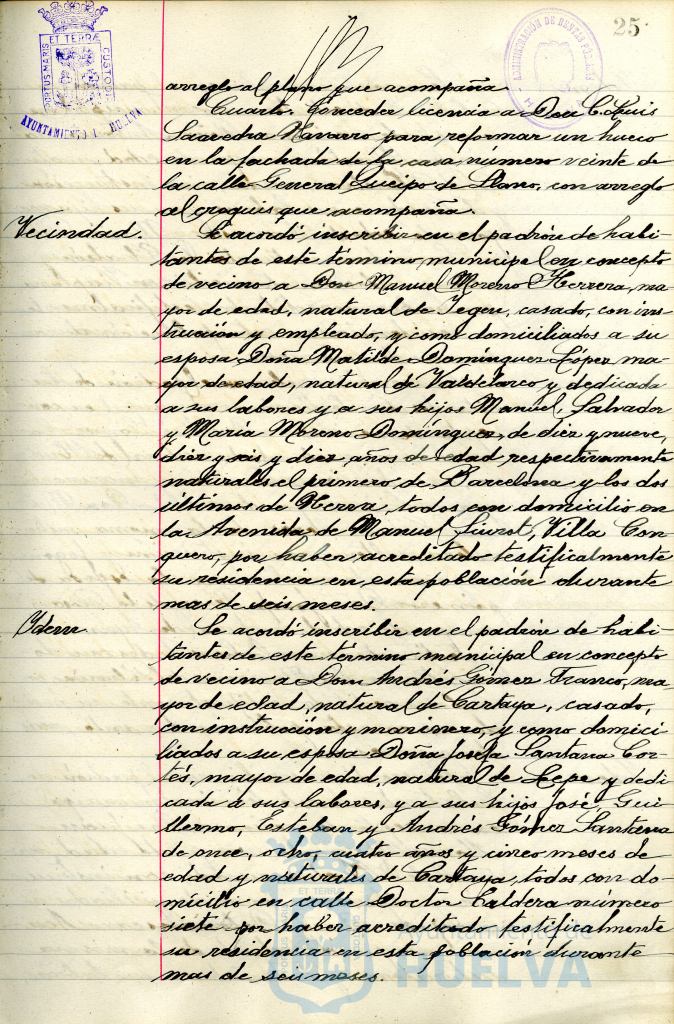 25
PORTUS MARIS ET TERRÆ CUSTODIA
AYUNTAMIENTO HUELVA
ADMINISTRACIÓN DE RENTAS PÚBLICAS
arreglo al plano que acompaña.
Cuarto. Conceder licencia a Don C. Luis
Saavedra Navarro, para reformar un hueco
en la fachada de la casa número veinte de
la calle General Queipo de Llano, con arreglo
al croquis que acompaña.
Vecindad.
Se acordó inscribir en el padrón de habi-
tantes de este término municipal en concepto
de vecino a Don Manuel Moreno Herrera, ma-
yor de edad, natural de, casado, con ins-
trucción y empleado, y como domiciliados a su
esposa Doña Matilde Domínguez López, ma-
yor de edad, natural de Valdelarco y dedicada
a sus labores y a sus hijos Manuel, Salvador
y María Moreno Domínguez, de diez y nueve,
diez y seis y diez años de edad respectivamente
naturales el primero de Barcelona y los dos
últimos de Nerva, todos con domicilio en
la Avenida de Manuel Siurot, Villa Con-
quero, por haber acreditado testificalmente
su residencia en esta población durante
mas de seis meses.
Idem.
Se acordó inscribir en el padrón de habi-
tantes de este término municipal en concepto
de vecino a Don Andrés Gómez Franco, ma-
yor de edad, natural de Cartaya, casado,
con instrucción y marinero, y como domici-
liados a su esposa Doña Josefa Santana Cor-
tés, mayor de edad, natural de Lepe y dedi-
cada a sus labores, y a sus hijos José, Gui-
llermo, Esteban y Andrés Gómez Santana
de once, ocho, cuatro años y cinco meses de
edad y naturales de Cartaya, todos con do-
micilio en calle Doctor Caldera número
siete por haber acreditado testificalmente
su residencia en esta población durante
mas de seis meses.
Ayuntamiento de
HUELVA